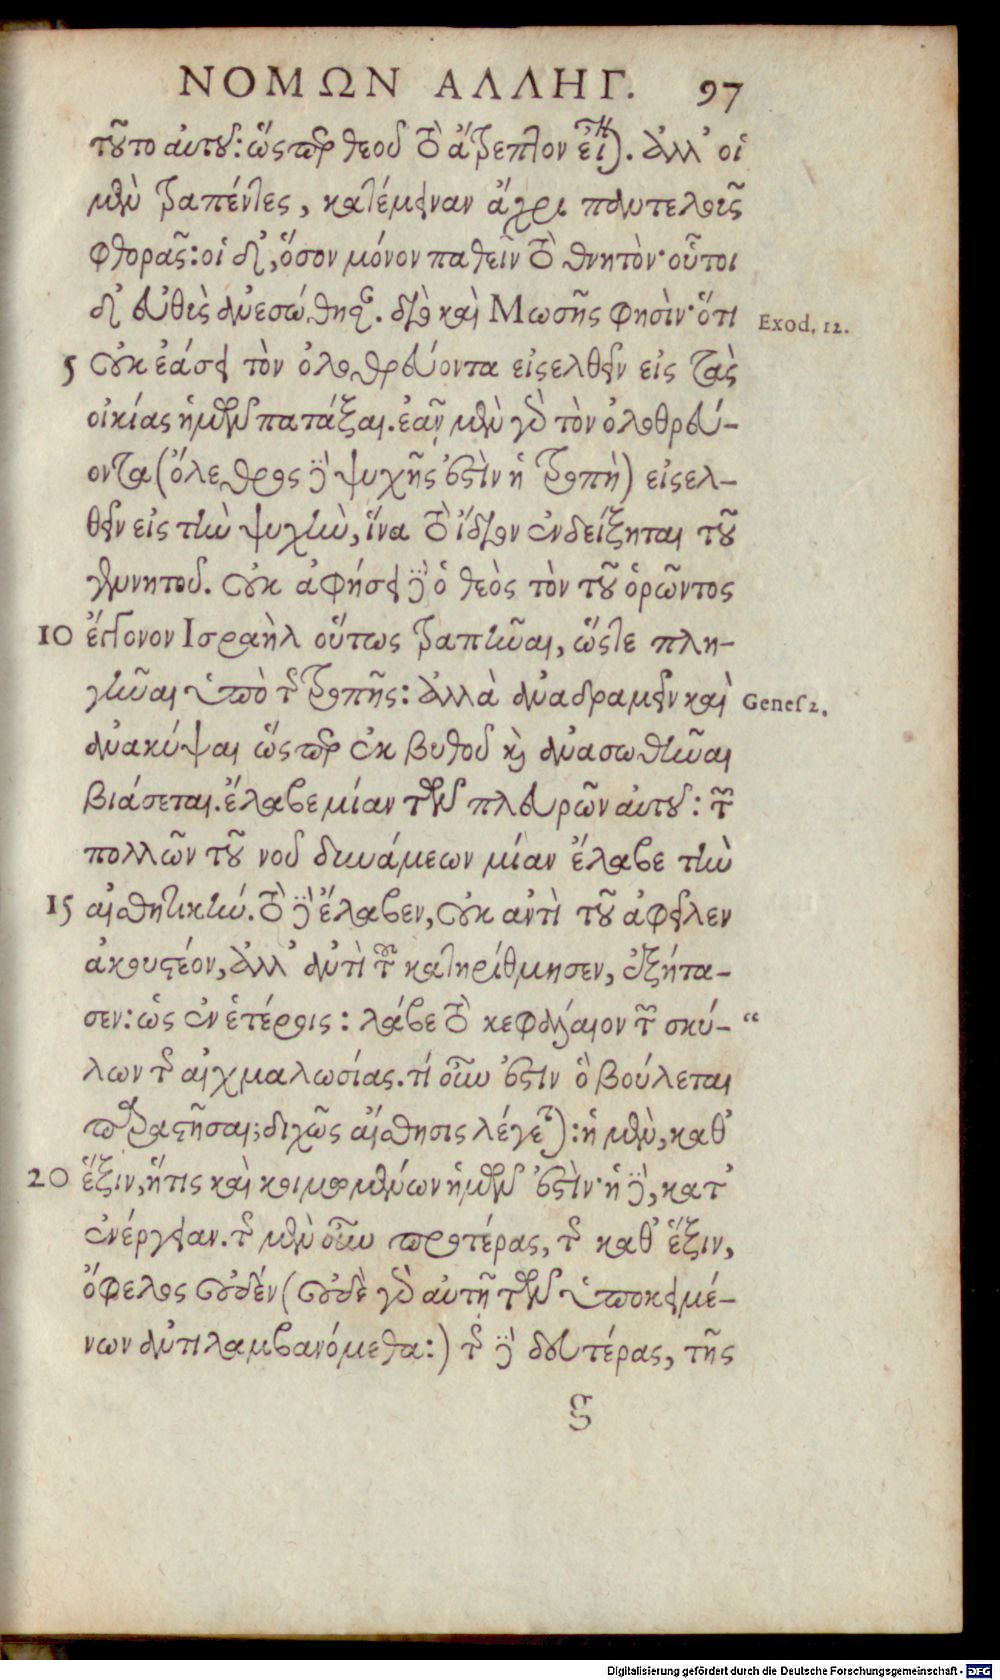 ΝΟΜΩΝ ΑΛΛΗΓ. 97
τοῦτο αὐτοῦ: ὥσπερ θεοῦ τὸ ἄτρεπτον εἶναι. ἀλλ' οἱ
μὲν τραπέντες, κατέμειναν ἄχρι παντελοῦς
φθορᾶς: οἱ δ', ὅσον μόνον παθεῖν τὸ θνητὸν· οὗτοι
δ' εὐθὺς ἀνεσώθησαν. διὸ καὶ Μωσῆς φησὶν· ὅτι
Exod. 12.
5 οὐκ ἐάσει τὸν ὀλοθρεύοντα εἰσελθεῖν εἰς τὰς
οἰκίας ἡμῶν πατάξαι. ἐᾷν μὲν γὰρ τὸν ὀλοθρεύ-
οντα (ὄλεθρος δὲ ψυχῆς ἐστὶν ἡ τροπὴ) εἰσελ-
θεῖν εἰς τὴν ψυχὴν, ἵνα τὸ ἴδιον ἐνδείξηται τοῦ
γεννητοῦ. οὐκ ἀφήσει δὲ ὁ θεὸς τὸν τοῦ ὁρῶντος
10 ἔγγονον Ισραὴλ οὕτως τραπῆναι, ὥστε πλη-
γῆναι ὑπὸ τῆς τροπῆς: ἀλλὰ ἀναδραμεῖν καὶ
Genes 2.
ἀνακύψαι ὥσπερ ἐκ βυθοῦ καὶ ἀνασωθῆναι
βιάσεται. ἔλαβε μίαν τῶν πλευρῶν αὐτοῦ: τῶν
πολλῶν τοῦ νοῦ δυνάμεων μίαν ἔλαβε τὴν
15 αἰσθητικήν. τὸ δὲ ἔλαβεν, οὐκ ἀντὶ τοῦ ἀφεῖλεν
ἀκουστέον, ἀλλ' ἀντὶ τοῦ κατηρίθμησεν, ἐξήτα-
σεν: ὡς ἐν ἑτέροις: λάβε τὸ κεφάλαιον τῶν σκύ- “
λων τῆς αἰχμαλωσίας. τί οὖν ἐστιν ὃ βούλεται
παραστῆσαι; διχῶς αἴσθησις λέγεται: ἡ μὲν, καθ'
20 ἕξιν, ἥτις καὶ κοιμωμένων ἡμῶν ἐστὶν· ἡ δὲ, κατ'
ἐνέργειαν. τῆς μὲν οὖν προτέρας, τῆς καθ' ἕξιν,
ὄφελος οὐδέν (οὐδὲ γὰρ αὐτῇ τῶν ὑποκειμέ-
νων ἀντιλαμβανόμεθα:) τῆς δὲ δευτέρας, τῆς
g
Digitalisierung gefördert durch die Deutsche Forschungsgemeinschaft - DFG